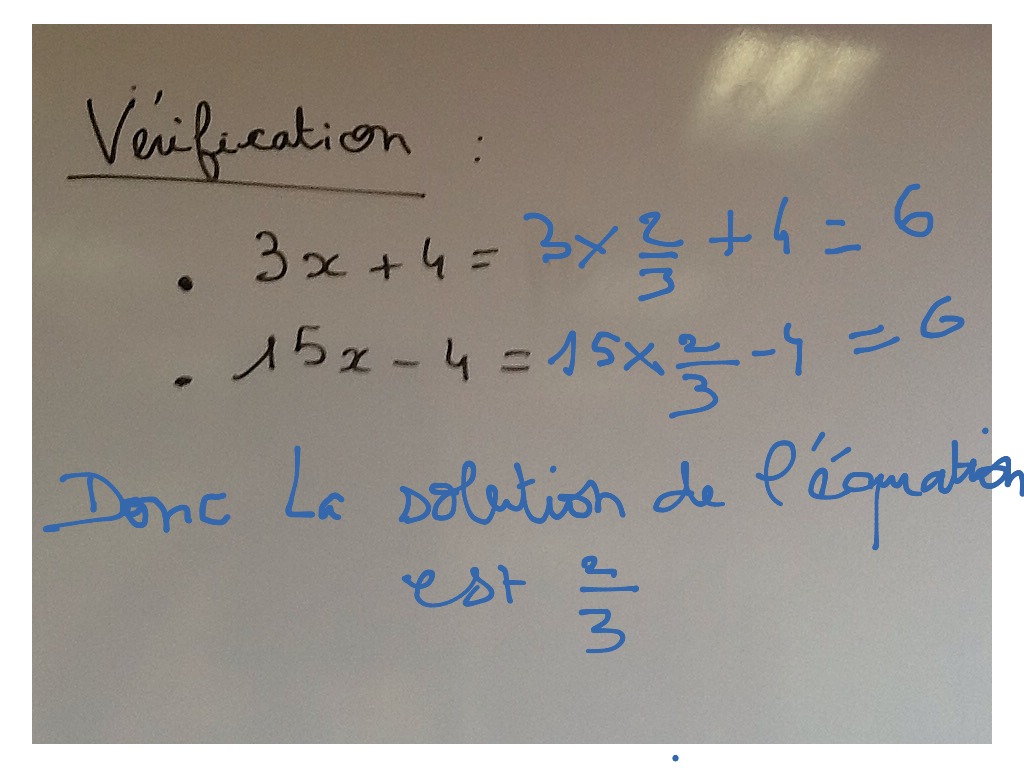 Vérification :
• 3x + 4 = 3 × 2/3 + 4 = 6
• 15x - 4 = 15 × 2/3 - 4 = 6
Donc La solution de l'équation
est 2/3